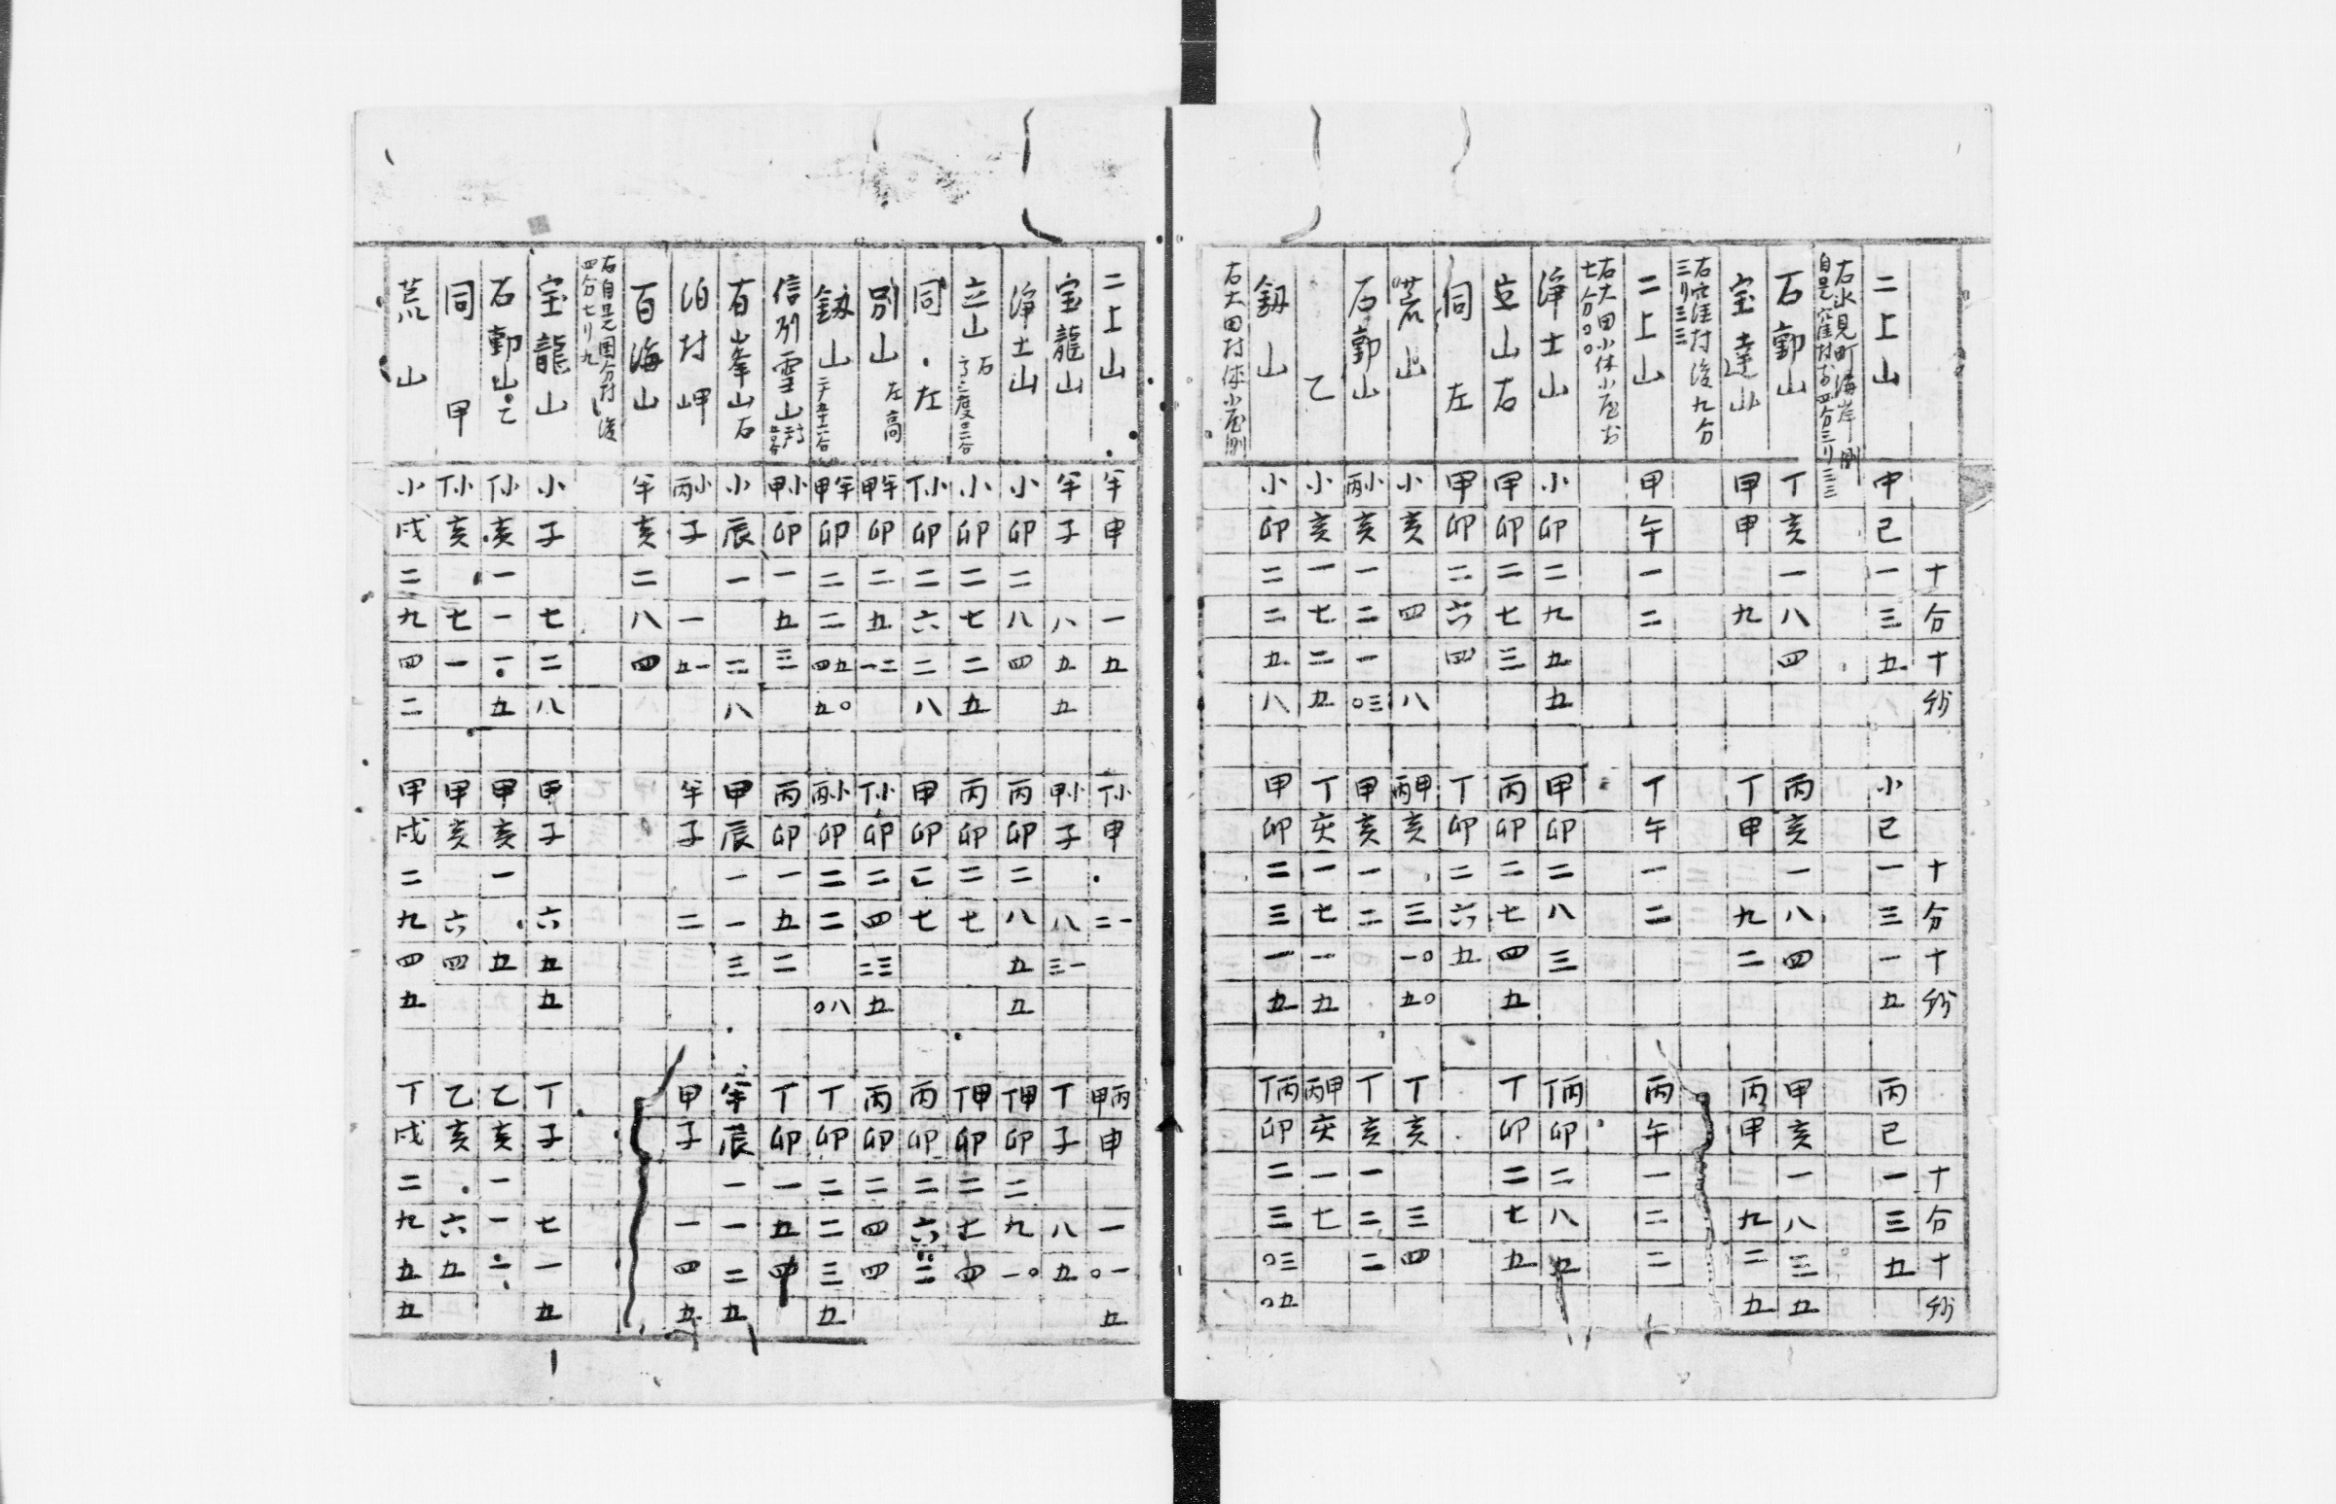 十分十秒 十分十秒 十分十秒
二上山 中巳一三五 小巳一三一五 丙巳一三五
右氷見町海岸測 自是窪村前四分三リ三三
石動山 丁亥一八四 丙亥一八四 甲亥一八三五
宝達山 甲申九 丁申九二 丙申九二五
右窪村後九分三リ三三
二上山 甲午一二 丁午一二 丙午一二二
右大田小休小屋前七分〇〇
浄土山 小卯二九五五 甲卯二八三 丁丙卯二八五
立山右 甲卯二七三 丙卯二七四五 丁卯二七五
同左 甲卯二六四 丁卯二六五
荒山 小亥四八 丙甲亥三一〇五〇 丁亥三四
石動山 丙小亥一二一〇三 甲亥一二 丁亥一二二
乙 小亥一七二五 丁亥一七一五 丙甲亥一七
釼山 小卯二二五八 甲卯二三一五 丁丙卯二三〇三〇五
右大田村休小屋測
二上山 半申一五 丁小申二一 甲丙申一〇一五
宝龍山 半子八五五 甲小子八三一 丁子八五
浄土山 小卯二八四 丙卯二八五五 丁甲卯二九一〇
立山右 小卯二七二五 丙卯二七 丁甲卯二七四
同左 丁小卯二六二八 甲卯二七 丙卯二六三
別山左高 甲半卯二五一二 丁小卯二四二三五 丙卯二四四
釼山 甲半卯二二四五五〇 丙小卯二二〇八 丁卯二二三五
信列雪山 甲小卯一五三 丙卯一五二 丁卯一五四
有峯山石 小辰一二八 甲辰一一三 半辰一一二五
泊村岬 丙小子一五一 半子二 甲子一四五
百海山 半亥二八四
右自是国分村後四分七リ九
宝龍山 小子七二八 甲子六五五 丁子七一五
石動山乙 丁小亥一一一五 甲亥一五 乙亥一一二
同甲 丁小亥七一 甲亥六四 乙亥六五
荒山 小戌二九四二 甲戌二九四五 丁戌二九五五